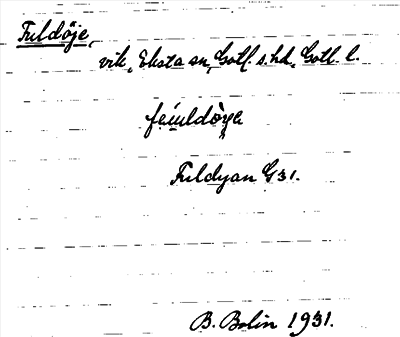 Fuldöje,
vik, Eksta sn, Gotl. s. hd, Gotl. l.
Fuldyan G31.
B. Bolin 1931.